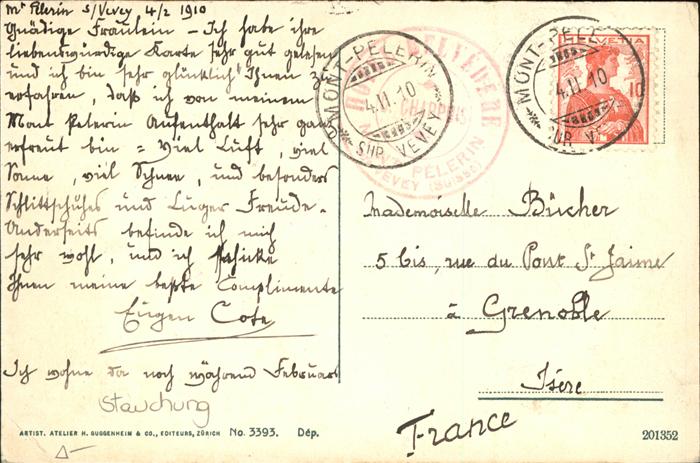 Mt Pelerin s/Vevey 4/2 1910
Gnädige Fräulein – Ich habe ihre
liebenswürdige Karte sehr gut gelesen
und ich bin sehr glücklich Ihnen zu
erfahren, daß ich von meinem
Mont Pelerin Aufenthalt sehr ganz
erfreut bin = Viel Luft, viel
Sonne, viel Schnee, und besonders
Schlittschuhes und Luger Freude.
Anderseits befinde ich mich
sehr wohl, und ich schicke
Ihnen meine beste Complimente
Eugen Cote
Ich wohne da noch während Februar
Stauchung
ARTIST. ATELIER H. GUGGENHEIM & CO., EDITEURS, ZÜRICH No. 3393. Dép.
MONT-PELERIN
4.II.10
SUR VEVEY
BELVÉDÈRE
CHAPPUIS
PELERIN
VEVEY (SUISSE)
MONT-PELE
4.II.10
SUR V
HELVETIA
10
Mademoiselle Bücher
5 bis, rue du Pont St Jaime
à Grenoble
Isère
France
201352